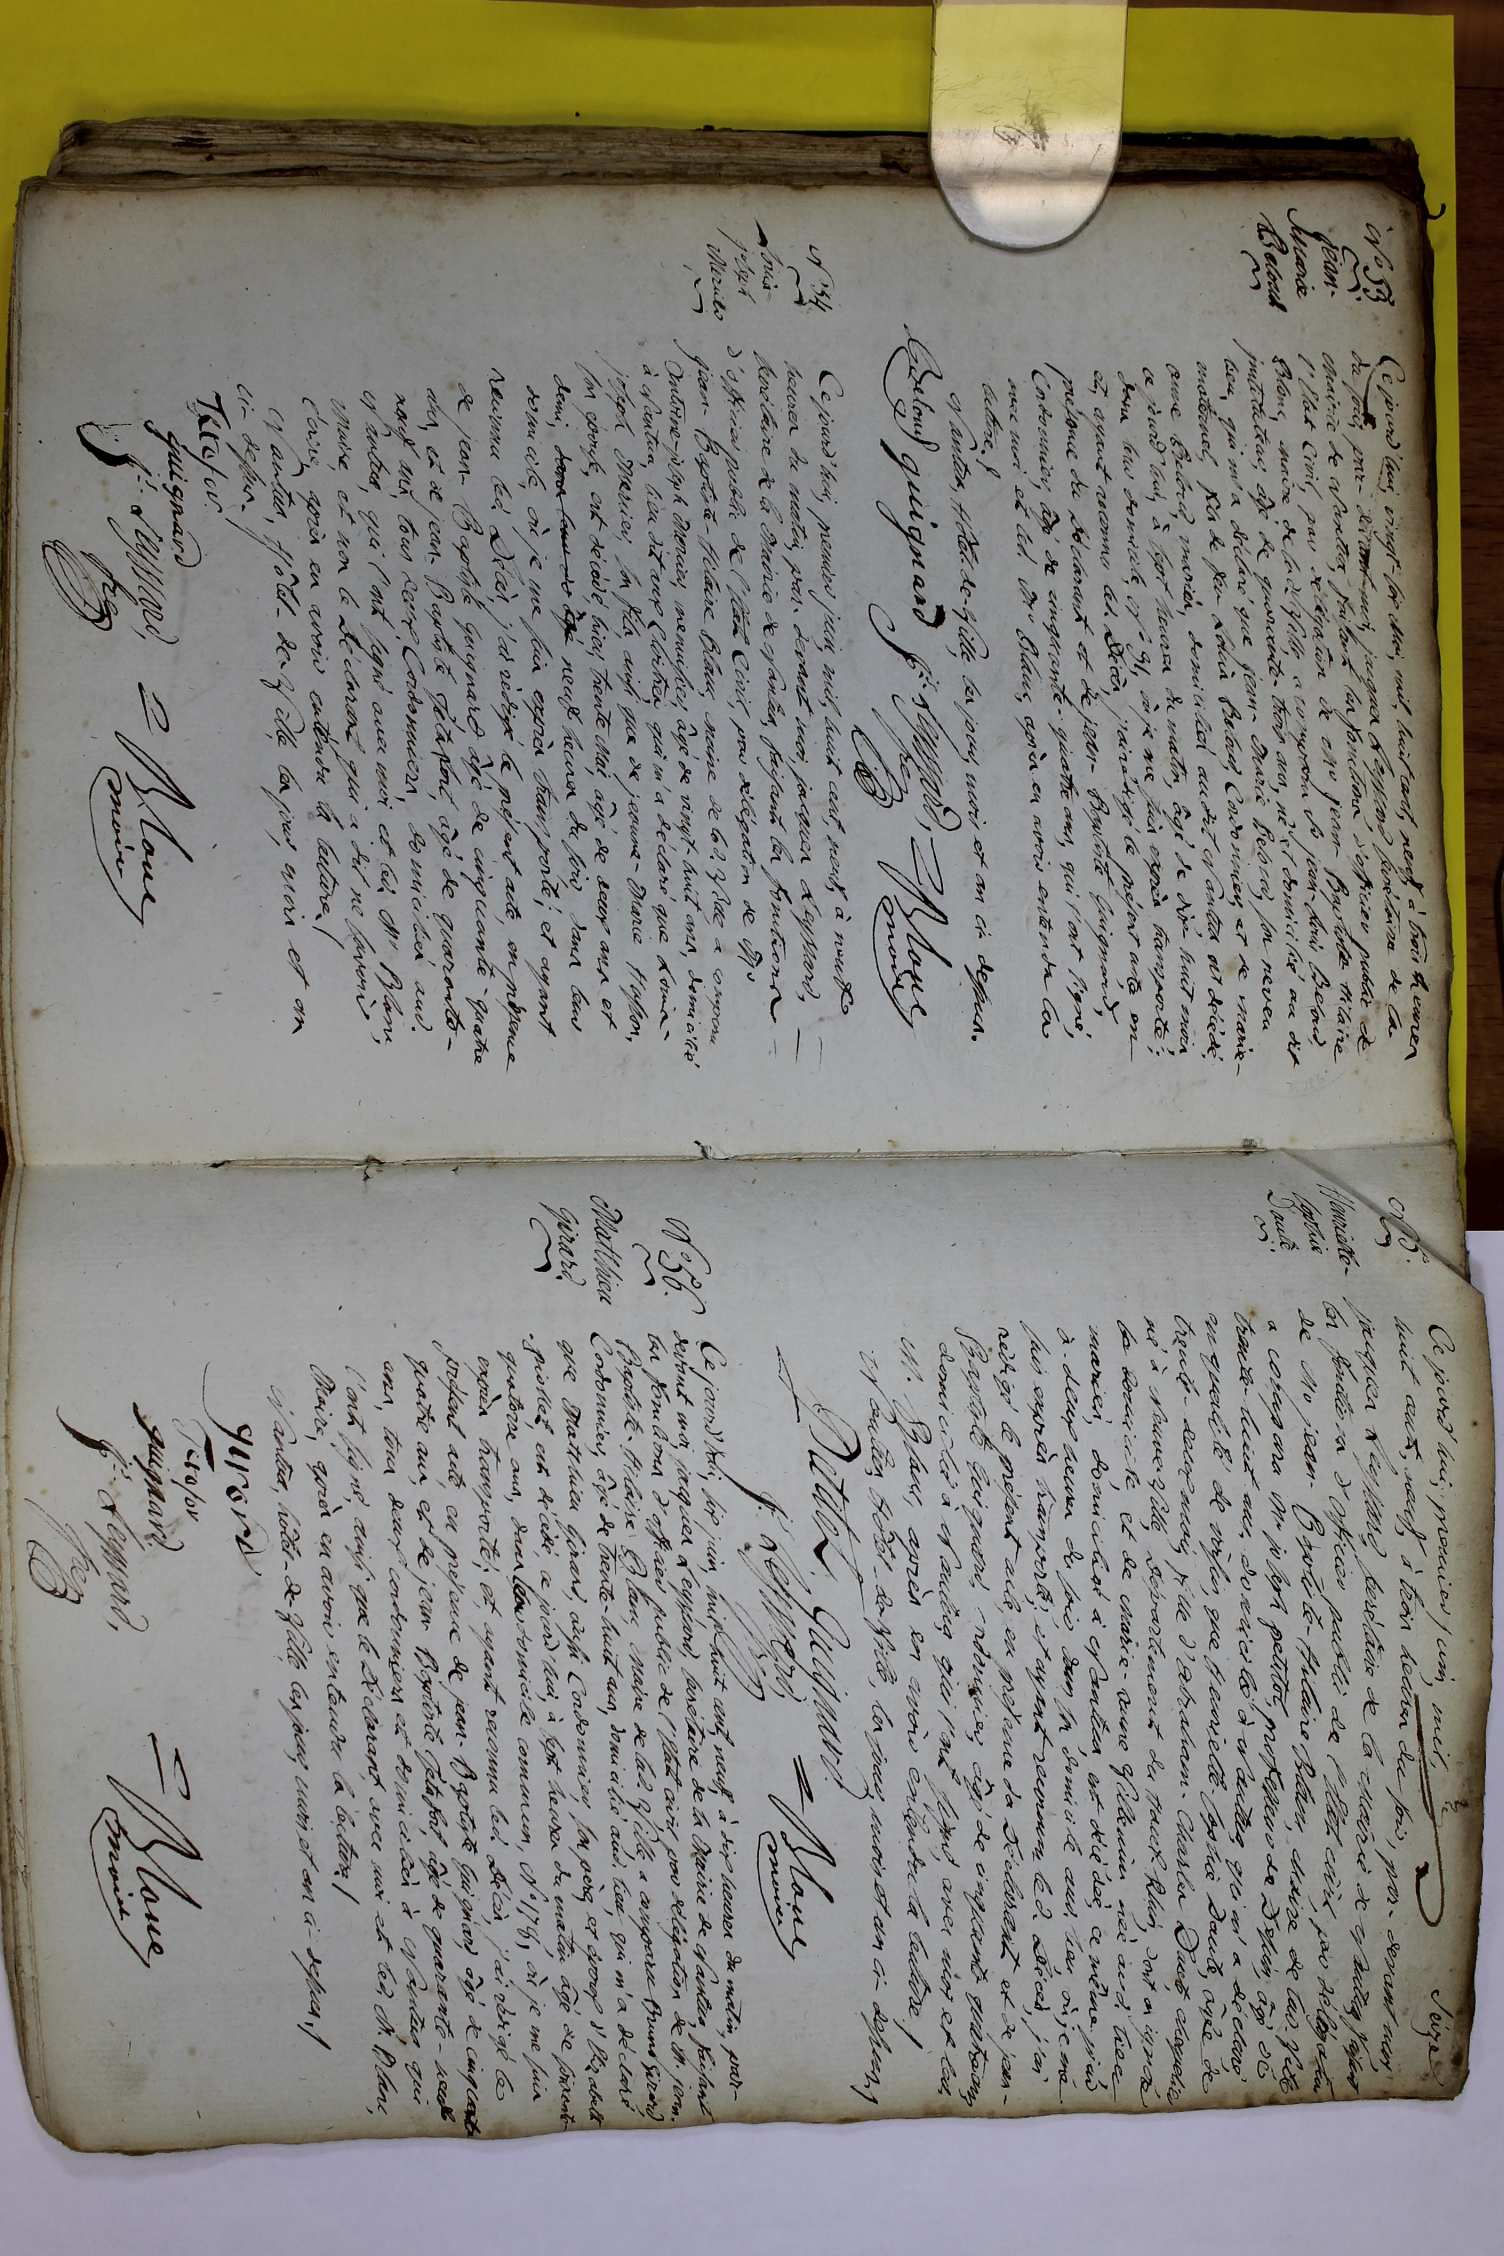 N.° 53
Jean-
Marie
Beloud
Ce jourd'hui, vingt-six mai, mil, huit cent, neuf, à trois heures
du soir, par-devant moi, jacques Leyssard, secrétaire de la
Mairie de Nantua, faisant les fonctions d'officier public de
l'état Civil, par délégation de mr jean-Baptiste Hilaire
Blanc, maire de lad. Ville, a comparu Sr jean-Louis Beloud,
instituteur, âgé de quarante-trois ans, né et domicilié au dit
lieu, qui m'a déclaré que jean-Marie Beloud, son neveu
maternel, fils de feu Louis Beloud, Cordonnier, et de marie-
anne Beloud, mariés, domiciliés audit Nantua est décédé,
ce jourd'hui, à sept heures du matin, âgé de dix-huit mois
dans leur domicile, N.° 91, où je me suis exprès transporté;
et, ayant reconnu led. Décès, j'ai rédigé le présent acte en
présence du déclarant et de jean-Baptiste Guignard,
Cordonnier, âgé de cinquante-quatre ans, qui l'ont signé,
avec moi et led. Mr. Blanc, après en avoir entendu la
lecture./
Nantua, Hôtel-de-Ville, les jour, mois et an ci-dessus.
Beloud guignard J.s Leyssard, Blanc
sre maire
N.° 54
Louis-
joseph
Mercier
Ce jourd'hui, premier juin, mil, huit cent, neuf, à neuf
heures du matin, par-devant moi, jacques Leyssard,
secrétaire de la Mairie de Nantua, faisant les fonctions
d'officier public de l'état Civil, par délégation de Mr.
jean-Baptiste Hilaire Blanc, maire de lad. Ville a comparu
Antoine-joseph Mercier, menuisier, âgé de vingt-huit ans, domicilié
à Nantua, lieu dit aux qui m'a déclaré que Louis-
joseph Mercier, son fils ainsi que de jeanne-Marie
son épouse, est décédé hier, trente Mai, âgé de deux ans et
demi, neuf heures du soir dans leur
domicile, où je me suis exprès transporté; et ayant
reconnu led. Décès, j'ai rédigé le présent acte, en présence
de jean-Baptiste Guignard âgé de cinquante-quatre
ans, et de jean-Baptiste âgé de quarante-
neuf ans, tous deux Cordonniers, domiciliés aud.
Nantua, qui l'ont signé avec moi et led. Mr. Blanc,
Maire, et non le Déclarant, qui a dit ne savoir
écrire, après en avoir entendu la lecture./
Nantua, Hôtel-de-Ville, les jour, mois et an
ci-dessus./
guignard
J.s Leyssard, Blanc
sre maire
Seize
N.° 55.
Henriette-
Sophie
Dauté
Ce jourd'hui, premier juin, mil,
huit cent, neuf, à trois heures du soir, par-devant moi
jacques Leyssard, secrétaire de la Mairie de Nantua, faisant
les fonctions d'officier public de l'état civil, par délégation
de Mr jean-Baptiste-Hilaire Blanc, maire de lad. Ville
a comparu Mr. joseph professeur de Dessin, âgé de
trente-huit ans, domicilié à Nantua, qui m'a déclaré
en qualité de voisin, que Henriette Sophie Dauté, âgée de
trente-deux mois, fille d'abraham-Charles Dauté
né à Neuveville, Département du haut Rhin, dont on ignore
le domicile et de marie-anne née aud. lieu
mariés, domiciliés à Nantua est décédée, ce même jour
à deux heures du soir dans son domicile aud. lieu où je me
suis exprès transporté; et ayant reconnu led. Décès, j'ai
rédigé le présent acte, en présence du déclarant et de jean-
Baptiste Guignard, cordonnier, âgé de cinquante quatre ans
domicilié à Nantua, qui l'ont signé, avec moi et led.
M. Blanc, après en avoir entendu la lecture./
Nantua, Hôtel-de-Ville, les jour, mois et an ci-dessus./
Guignard.
J.s Leyssard, Blanc
sre maire
N.° 56.
Matthieu
Girard.
Ce jourd'hui, six juin, mil, huit cent, neuf, à dix heures du matin, par-
devant moi jacques Leyssard, secrétaire de la Mairie de Nantua, faisant
les fonctions d'officier public de l'état civil par délégation de M. jean-
Baptiste Hilaire Blanc, Maire de lad. Ville a comparu Bruno Girard
Cordonnier, âgé de trente-huit ans, domicilié aud. lieu, qui m'a déclaré
que Matthieu Girard, aussi Cordonnier, son père, et époux d'Elizabeth
est décédé, ce jourd'hui, à sept heures du matin âgé de soixante-
quatorze ans, dans leur domicile commun, N.° 176, où je me suis
exprès transporté; et ayant reconnu led. Décès, j'ai rédigé le
présent acte en présence de jean-Baptiste Guignard, âgé de cinquante
quatre ans, et de jean Baptiste âgé de quarante-neuf
ans, tous deux cordonniers et domiciliés à Nantua qui
l'ont signé ainsi que le Déclarant, avec moi et led. M. Blanc,
Maire, après en avoir entendu la lecture./
Nantua, hôtel-de-Ville, les jour, mois et an ci-dessus./
girard
guignard.
J.s Leyssard, Blanc
sre maire